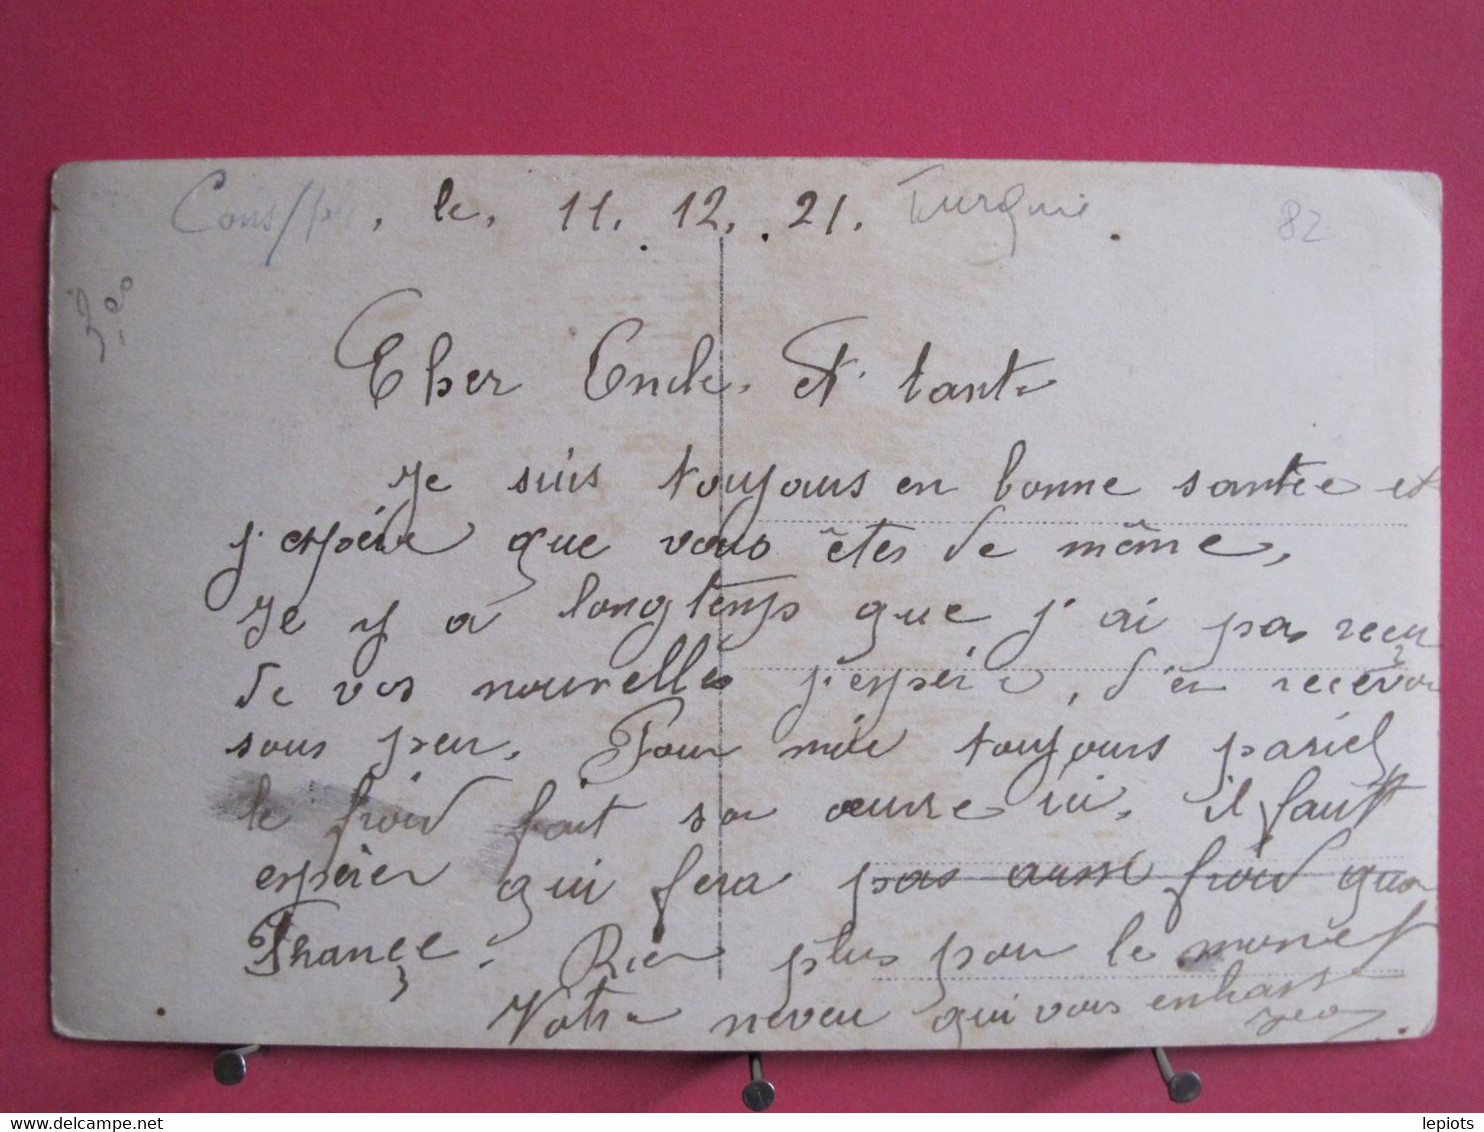 Cons/ple, le, 11. 12. 21. Turquie
82
3,00
Cher Oncle, et tante
Je suis toujours en bonne santée et
j'espère que vous êtes de même,
Je y a longtemps que j'ai pas reçu
de vos nouvelles j'espère, d'en recevoir
sous peu. Pour moi toujours pariel
le froid fait sa oeuvre ici, il faut
espérer qui fera pas aussi froid quan
France. Rien plus pour le moment
Votre neveu qui vous embrass
lepiots